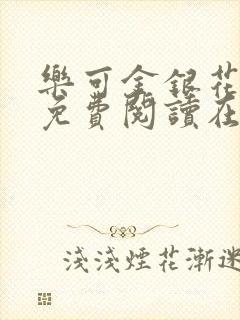 樂可金銀花
免費閱讀在
淺淺煙花漸迷